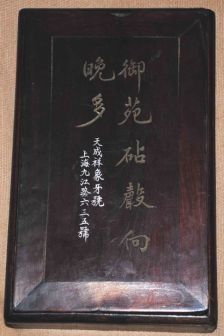 御苑砧聲向
晚多
天成祥象牙號
上海九江路六二五號